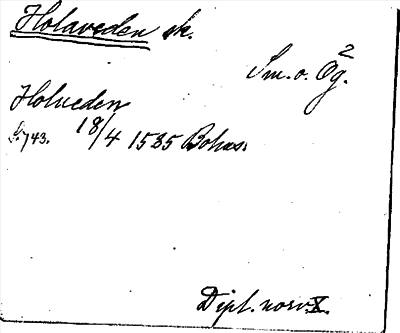 Holaveden sk.
Sm. o. Ög. 2
Holueden
S. 743. 18/4 1535 Bohus.
Dipl. norv. X.